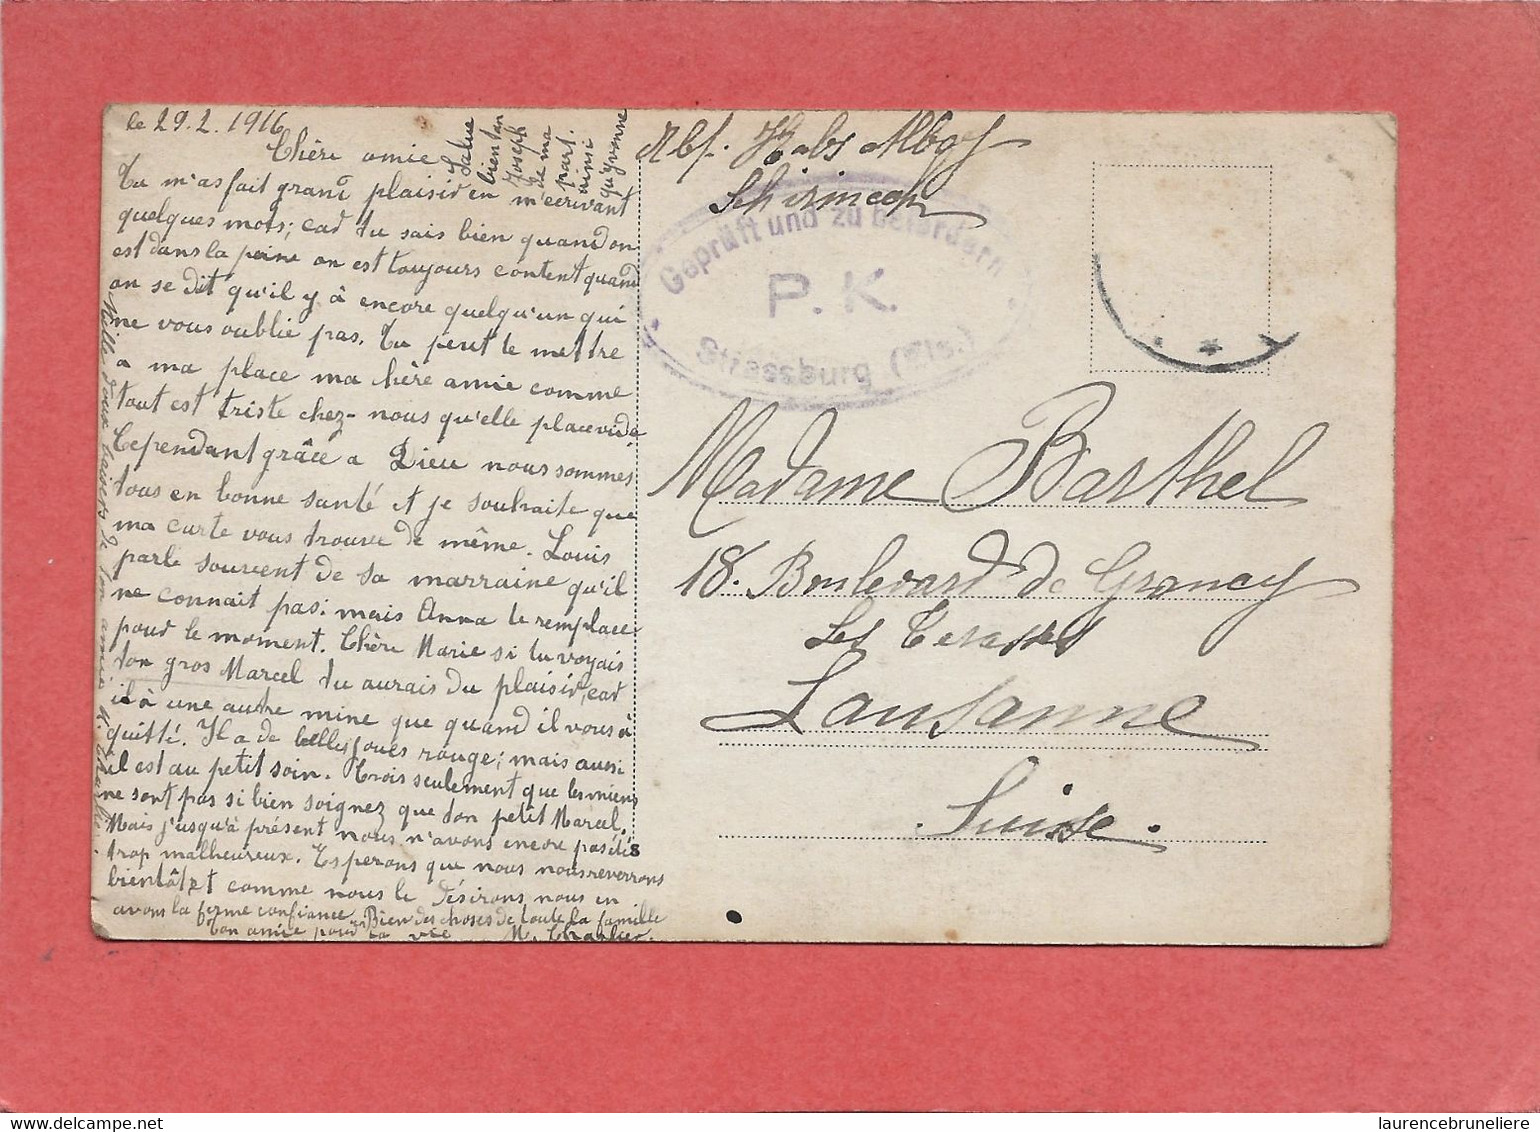 le 29.2.1916
Chère amie
Tu m'as fait grand plaisir en m'ecrivant
quelques mots; car tu sais bien quand on
est dans la peine on est toujours content quand
on se dit qu'il y à encore quelqu'un qui
ne vous oublie pas. Tu peut te mettre
a ma place ma chère amie comme
tout est triste chez-nous qu'elle place vide
Cependant grâce a Dieu nous sommes
tous en bonne santé et je souhaite que
ma carte vous trouve de même. Louis
parle souvent de sa marraine qu'il
ne connait pas; mais Anna te remplace
pour le moment. Chère Marie si tu voyais
ton gros Marcel tu aurais du plaisir, car
il à une autre mine que quand il vous à
quitté. Il a de belles joues rouge; mais aussi
il est au petit soin. Crois seulement que les miens
ne sont pas si bien soignez que ton petit Marcel.
Mais j'usqu'à présent nous n'avons encore pas étés
trop malheureux. Esperons que nous nous reverrons
bientôt et comme nous le désirons, nous en
avons la ferme confiance. Bien des choses de toute la famille
Ton amie pour la vie M. Charlier.
Salue
bien ton
Joseph
de ma
part.
ainsi
qu'Yvonne
Mille doux baisers de ton amie M. Charlier.
Abs.
Schirmeck
Geprüft und zu befördern
P. K.
Strassburg (Els.)
Madame Barthel
18. Boulevard de Grancy
Les Terasses
Lausanne
Suisse.
laurencebruneliere